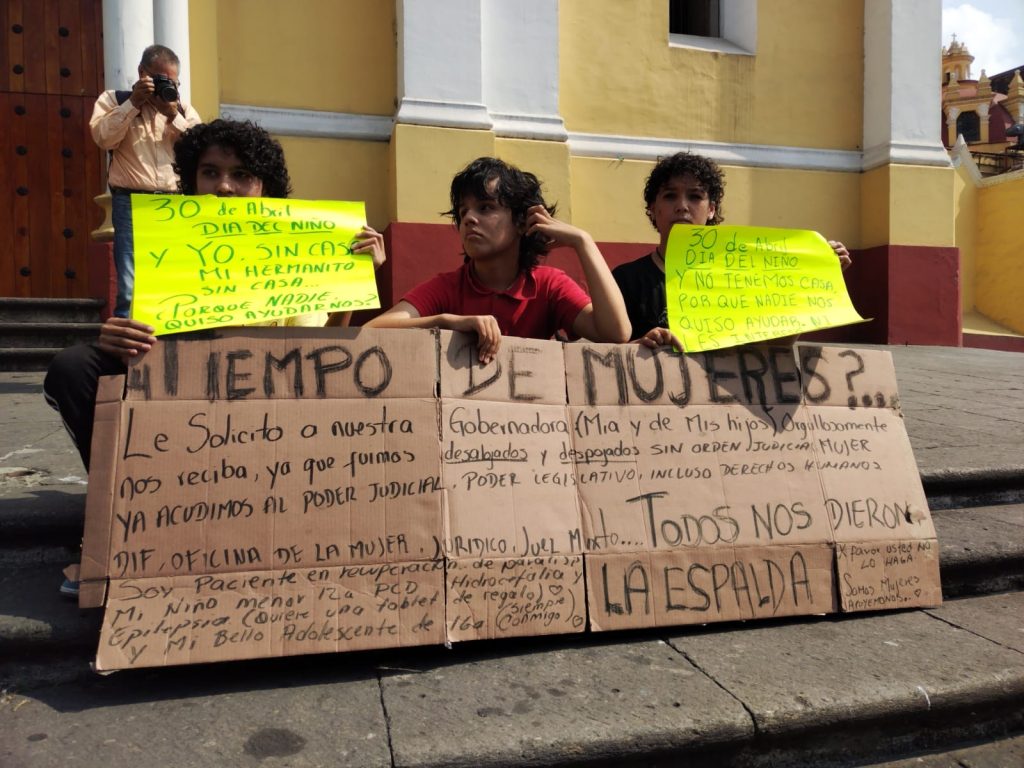 30 de Abril
DIA DEL NIÑO
y YO, SIN CASA
MI HERMANITO
SIN CASA...
¿PORQUE NADIE
QUISO AYUDARNOS?
30 de Abril
DIA DEL NIÑO
Y NO TENEMOS CASA,
POR QUE NADIE NOS
QUISO AYUDAR. NI
TIEMPO DE MUJERES?...
Le Solicito a nuestra Gobernadora (Mia y de Mis hijos) Orgullosamente MUJER
nos reciba, ya que fuimos desalojados y despojados SIN ORDEN JUDICIAL
YA ACUDIMOS AL PODER JUDICIAL, PODER LEGISLATIVO, INCLUSO DERECHOS HUMANOS
DIF, OFICINA DE LA MUJER, JURIDICO, Juez Mixto.... TODOS NOS DIERON
LA ESPALDA
Soy Paciente en recuperación de paralisis
Mi Niño menor 12a PCD Hidrocefalia y
Epilepsia (Quiere una tablet de regalo)
y Mi Bello Adolescente de 16a (Siempre Conmigo)
X favor usted NO
LO HAGA
Somos Mujeres
APOYEMONOS..